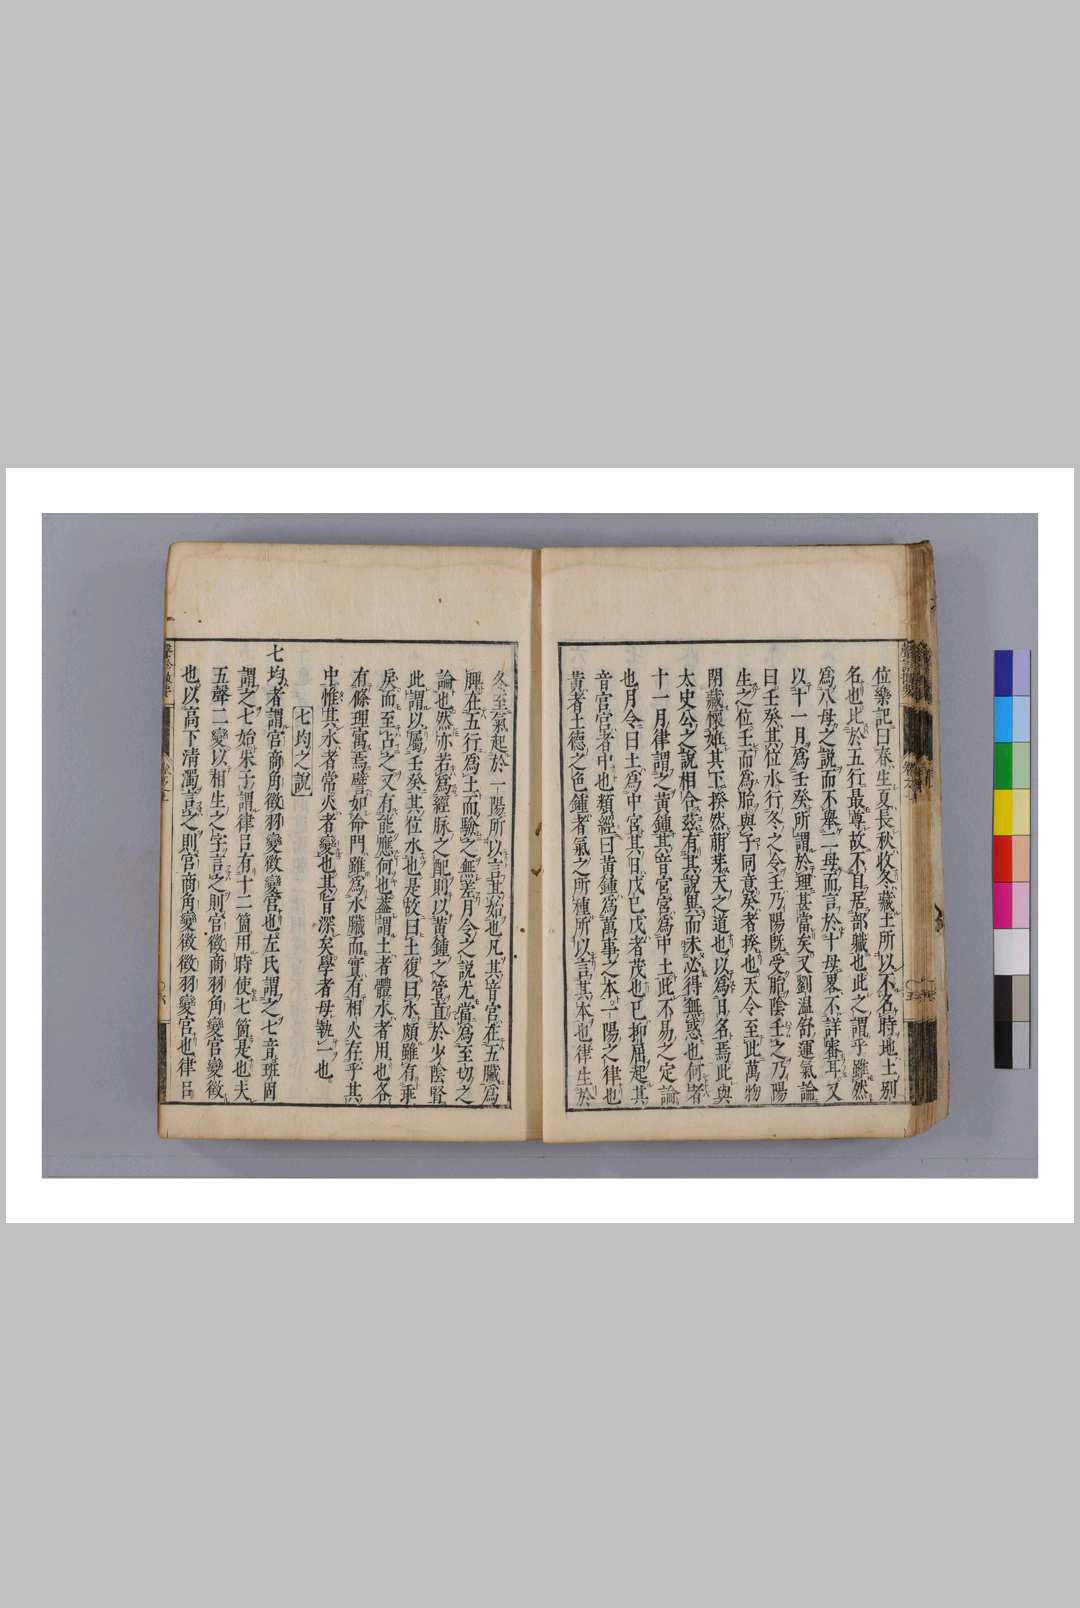 位樂記曰春生夏長秋收冬藏土所以不名時地土別
名也此於五行最尊故不自居部軄也此之謂乎雖然
爲八母之説而不擧二母而言於十母畧不詳審耳又
以十一月爲壬癸所謂於理甚當矣又劉温舒運氣論
曰壬癸其位水行冬之令壬乃陽既受胎陰壬之乃陽
生之位壬而爲胎與子同意癸者揆也天令至此萬物
閉藏懷妊其下揆然萠芽天之道也以爲日名焉此與
太史公之説相合茲有其説異而未必得無惑也何者
十一月律謂之黄鍾其音宮宮爲中土此不易之定論
也月令曰土爲中宮其日戊己戊者茂也己抑屈起其
音宮宮者中也類經曰黄鍾爲萬事之本一陽之律也
黄者土德之色鍾者氣之所種所以言其本也律生於
冬至氣起於一陽所以言其始也凡其音宮在五臟爲
脾在五行爲土而驗之無差月令之説尤當爲至切之
論也然亦若爲經脉之配則以黄鍾之管直於少陰腎
此謂以屬壬癸其位水也是故曰土復曰水頗雖有乖
戾而至占之又有能應何也蓋謂土者體水者用也各
有條理寓焉譬如命門雖爲水臟而實有相火在乎其
中惟其水者常火者變也其旨深矣學者毋執一也
七均之説
七均者謂宮商角徵羽變徵變宮也左氏謂之七音班固
謂之七始朱子謂律呂有十二箇用時使七箇是也夫
五聲二變以相生之字言之則宮徵商羽角變宮變徵
也以高下清濁言之則宮商角變徵徵羽變宮也律呂